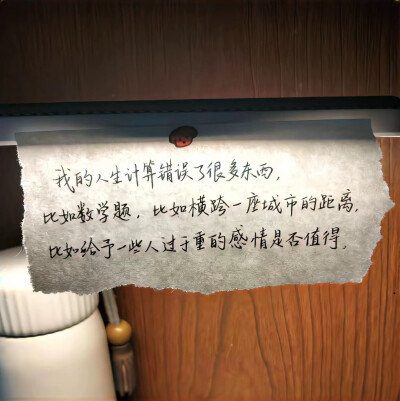 我的人生计算错误了很多东西，
比如数学题，比如横跨一座城市的距离，
比如给予一些人过于重的感情是否值得。